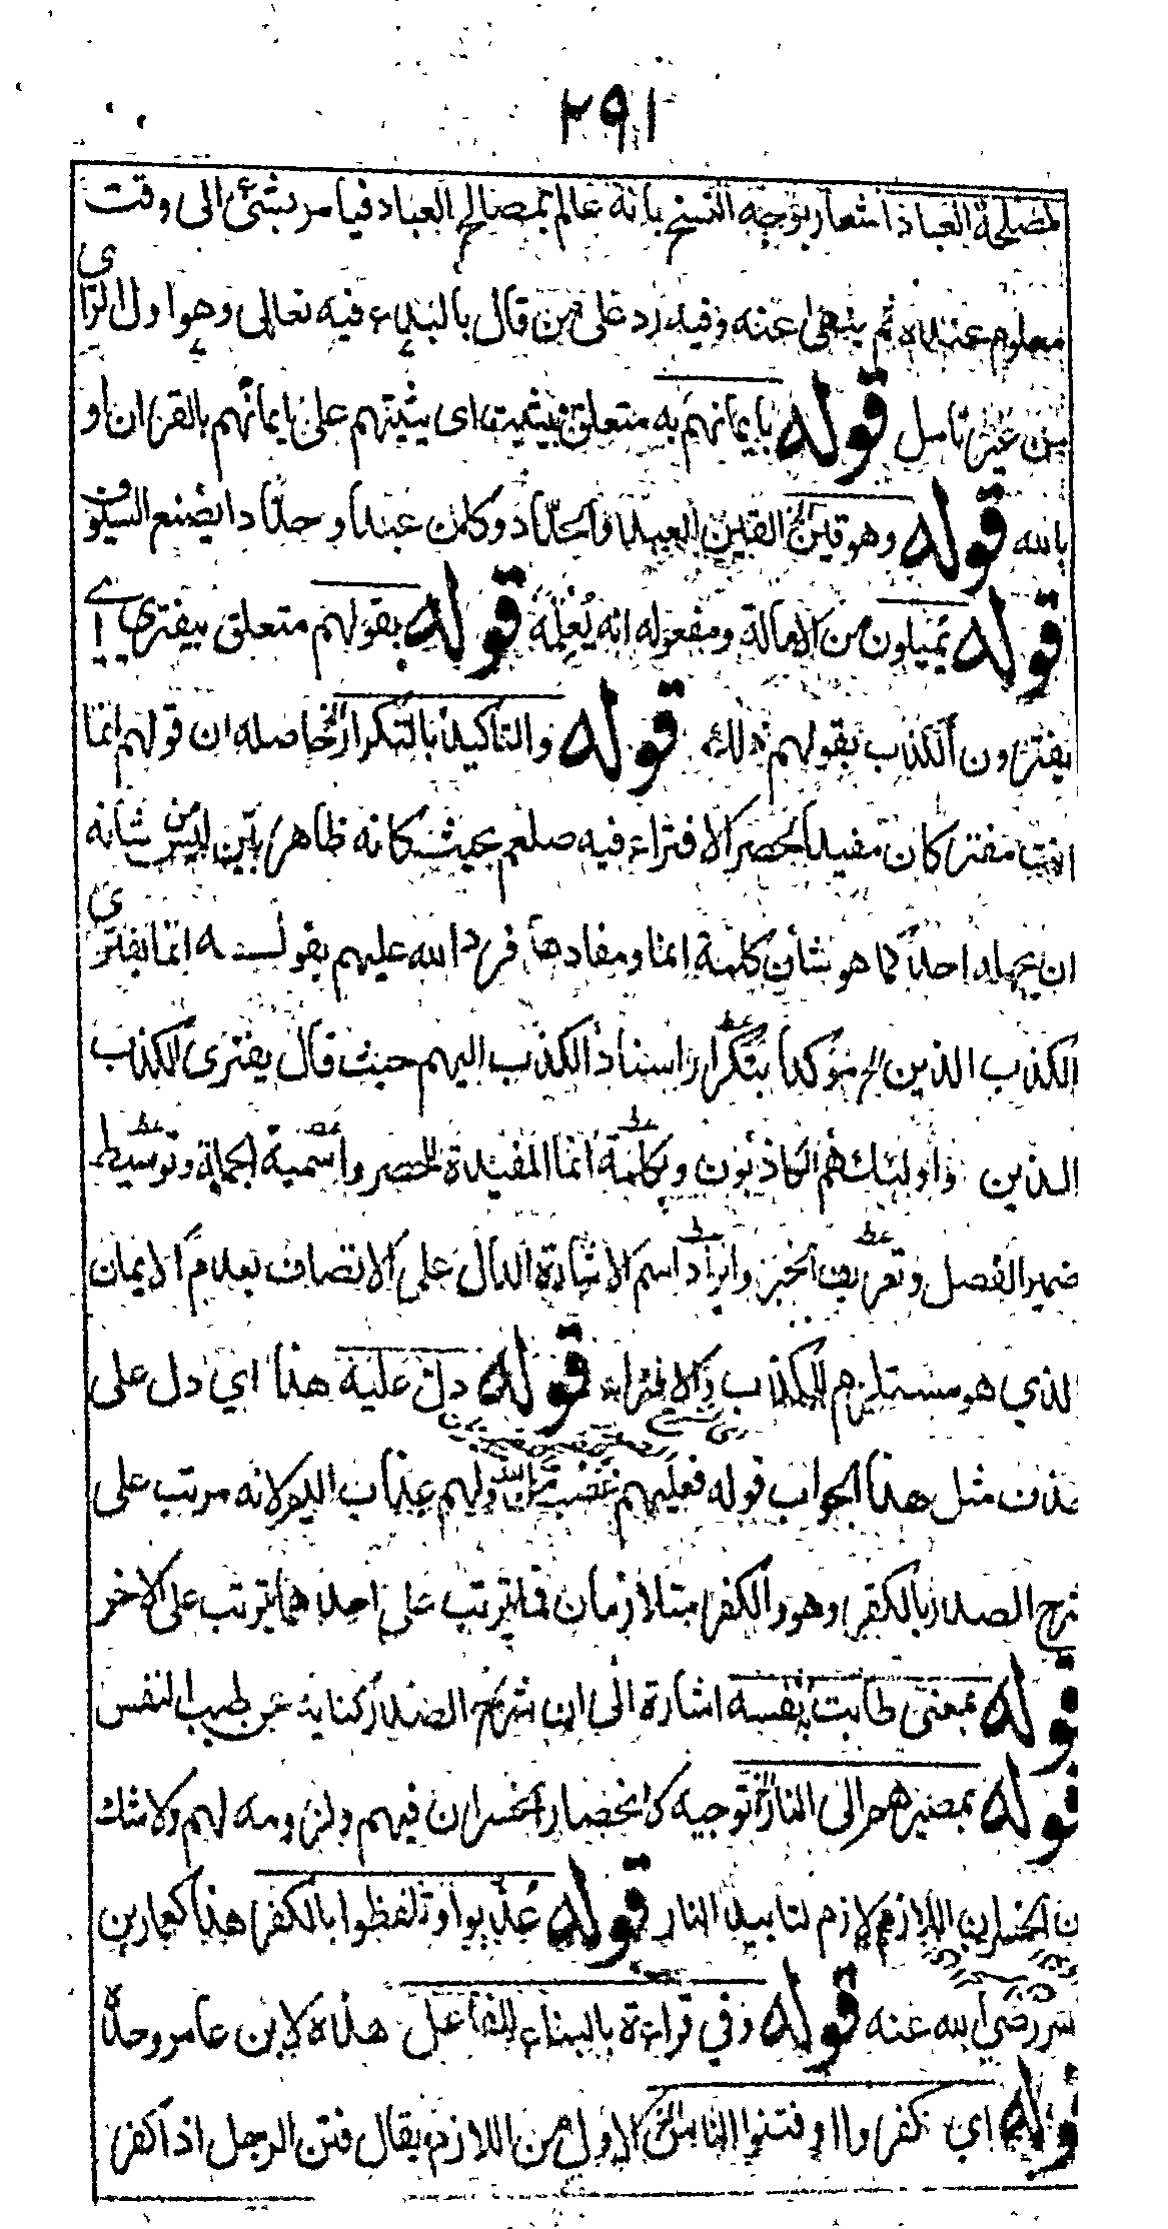 ٢٩١
لمصلحة العباد اشعار بتوجيه النسخ بانه عالم بمصالح العباد فيامر بشئ الى وقت
معلوم عنده ثم ينهى عنه وفيه رد على من قال بالبداء فيه تعالى وهو اول الراى
من غير تامل قوله بايمانهم به متعلق بيثبت اى يثبتهم على ايمانهم بالقران او
بالله قوله وهو قين الخ القين العبد والحداد وكان عبدا وحدادا يصنع السيوف
قوله يميلون من الامالة ومفعوله انه يعلمه قوله بقولهم متعلق بيفترى اى
يفترون الكذب بقولهم ذلك قوله والتاكيد بالتكرار الخ حاصله ان قولهم انما
انت مفتر كان مفيدا لحصر الافتراء فيه صلعم بحيث كانه ظاهر بين ليس من شانه
ان يجهله احد كما هو شان كلمة انما ومفادها فرد الله عليهم بقوله انما يفترى
الكذب الذين الخ مؤكدا بتكرار اسناد الكذب اليهم حيث قال يفترى الكذب
الذين واولئك هم الكاذبون وبكلمة انما المفيدة للحصر واسمية الجملة وتوسيط
ضمير الفصل وتعريف الخبر وايراد اسم الاشارة الدال على الاتصاف بعدم الايمان
الذي هو مستلزم للكذب والافتراء قوله دل عليه هذا اي دل على
حذف مثل هذا الجواب قوله فعليهم غضب من الله ولهم عذاب اليم لانه مرتب على
شرح الصدر بالكفر وهو والكفر متلازمان فما يترتب على احدهما يترتب على الاخر
قوله بمعنى طابت نفسه اشارة الى ان شرح الصدر كناية عن طيب النفس
قوله بمصيرهم الى النار الخ توجيه لانحصار الخسران فيهم ولزومه لهم ولا شك
ان الخسران اللازم لازم لتابيد النار قوله عذبوا وتلفظوا بالكفر هذا كعمار بن
ياسر رضى الله عنه قوله وفي قراءة بالبناء للفاعل هذه لابن عامر وحده
قوله اي كفروا او فتنوا الناس الخ الاول من اللازم يقال فتن الرجل اذا كفر